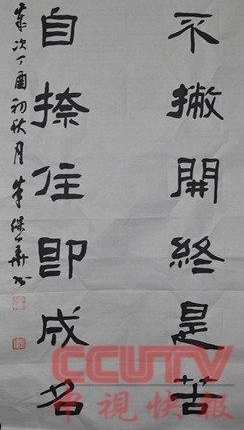 不撇開終是苦
自捺住即成名
歲次丁酉初秋月
CCUTV
中視快報